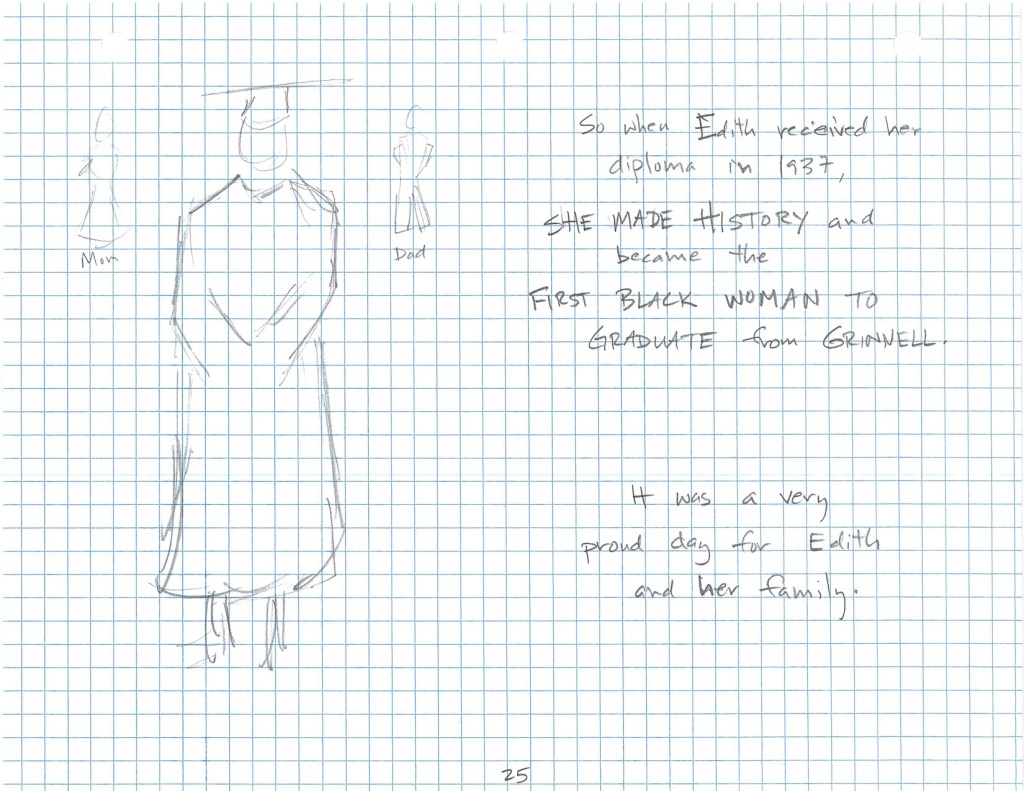 Mom
Dad
So when Edith received her
diploma in 1937,
SHE MADE HISTORY and
became the
FIRST BLACK WOMAN TO
GRADUATE from GRINNELL.
It was a very
proud day for Edith
and her family.
25